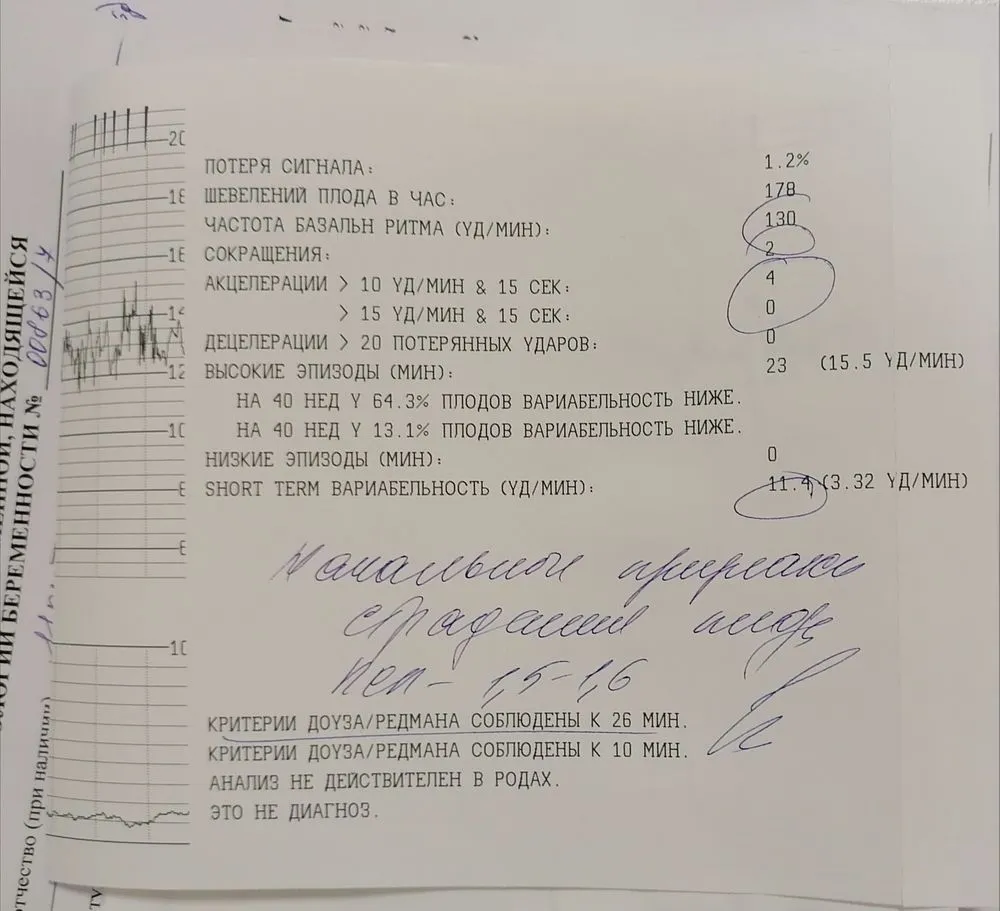 20
ПОТЕРЯ СИГНАЛА: 1.2%
18 ШЕВЕЛЕНИЙ ПЛОДА В ЧАС: 178
ЧАСТОТА БАЗАЛЬН РИТМА (УД/МИН): 130
16 СОКРАЩЕНИЯ: 2
АКЦЕЛЕРАЦИИ > 10 УД/МИН & 15 СЕК: 4
14 > 15 УД/МИН & 15 СЕК: 0
ДЕЦЕЛЕРАЦИИ > 20 ПОТЕРЯННЫХ УДАРОВ: 0
12 ВЫСОКИЕ ЭПИЗОДЫ (МИН): 23 (15.5 УД/МИН)
НА 40 НЕД У 64.3% ПЛОДОВ ВАРИАБЕЛЬНОСТЬ НИЖЕ.
10 НА 40 НЕД У 13.1% ПЛОДОВ ВАРИАБЕЛЬНОСТЬ НИЖЕ.
НИЗКИЕ ЭПИЗОДЫ (МИН): 0
8 SHORT TERM ВАРИАБЕЛЬНОСТЬ (УД/МИН): 11.4 (3.32 УД/МИН)
6
Начальные признаки
страдания плода
10
ПСП - 1,5-1,6
КРИТЕРИИ ДОУЗА/РЕДМАНА СОБЛЮДЕНЫ К 26 МИН.
КРИТЕРИИ ДОУЗА/РЕДМАНА СОБЛЮДЕНЫ К 10 МИН.
АНАЛИЗ НЕ ДЕЙСТВИТЕЛЕН В РОДАХ.
ЭТО НЕ ДИАГНОЗ.
НАХОДЯЩЕЙСЯ
БЕРЕМЕННОСТИ № 00863/7
отчество (при наличии)